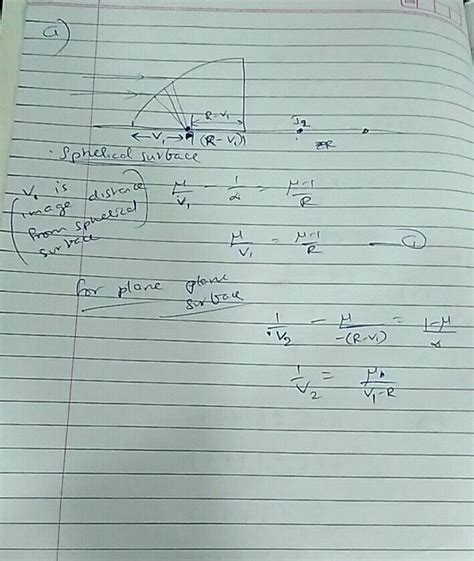 a)
R-V₁
I₂
←V₁→ (R-V₁)
2R
. Spherical surface
(V₁ is image distance from spherical surface)
μ/V₁ - 1/∝ = μ-1/R
μ/V₁ = μ-1/R —①
for plane plane surface
1/V₂ - μ/-(R-V₁) = 1-μ/∝
1/V₂ = μ/V₁-R